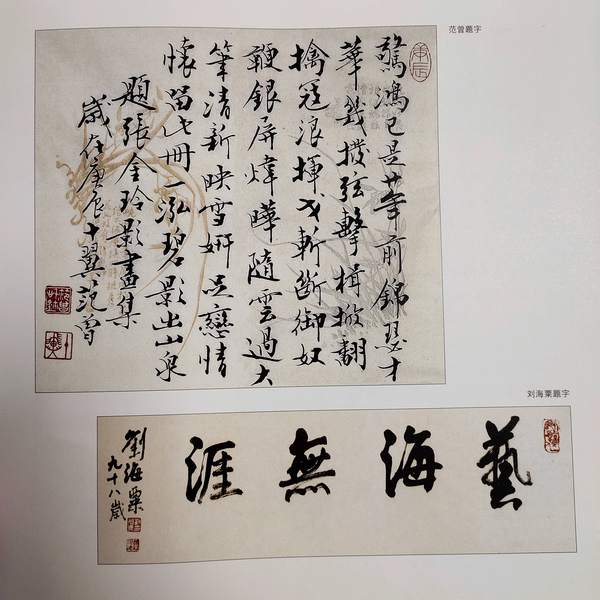 范曾題字
驚鴻已是廿年前錦瑟才
華幾撥弦擊楫掀翻
擒寇浪揮戈斬斷御奴
鞭銀屏煒曄隨雲過大
筆清新映雪妍足戀情
懷留此冊一泓碧影出山泉
題張金玲影畫集
歲在庚辰十翼范曾
刘海粟題字
藝海無涯
劉海粟
九十八歲